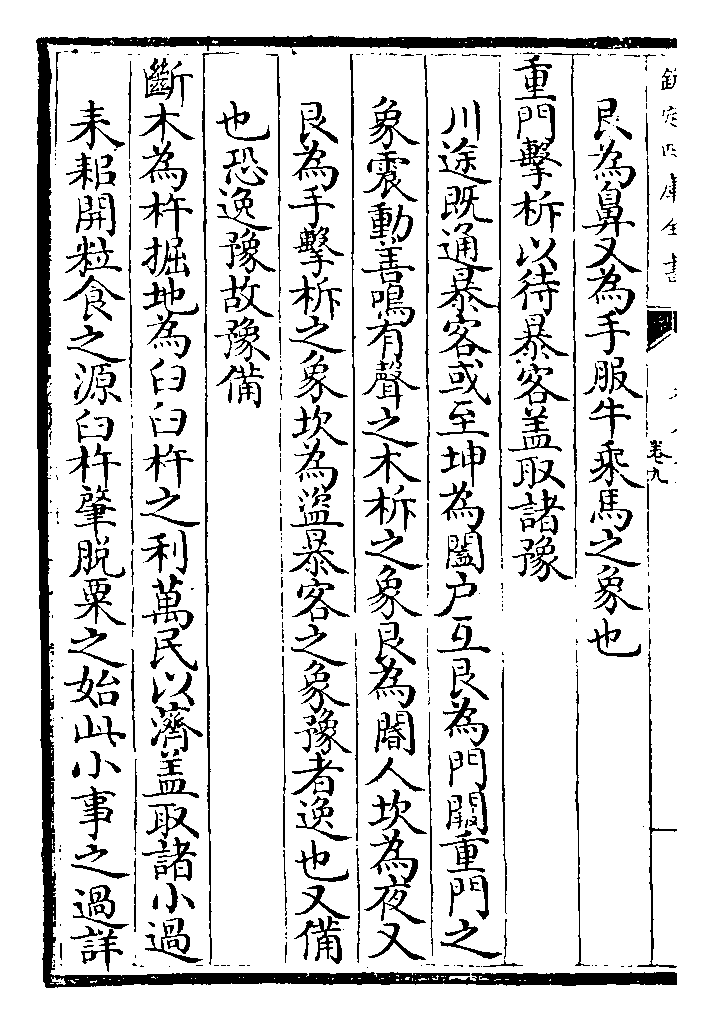 欽定四庫全書
卷九
艮為鼻又為手服牛乘馬之象也
重門擊柝以待暴客盖取諸豫
川途既通暴客或至坤為闔户互艮為門闕重門之
象震動善鳴有聲之木柝之象艮為閽人坎為夜又
艮為手擊柝之象坎為盜暴客之象豫者逸也又備
也恐逸豫故豫備
斷木為杵掘地為臼臼杵之利萬民以濟盖取諸小過
耒耜開粒食之源臼杵肇脱粟之始此小事之過詳